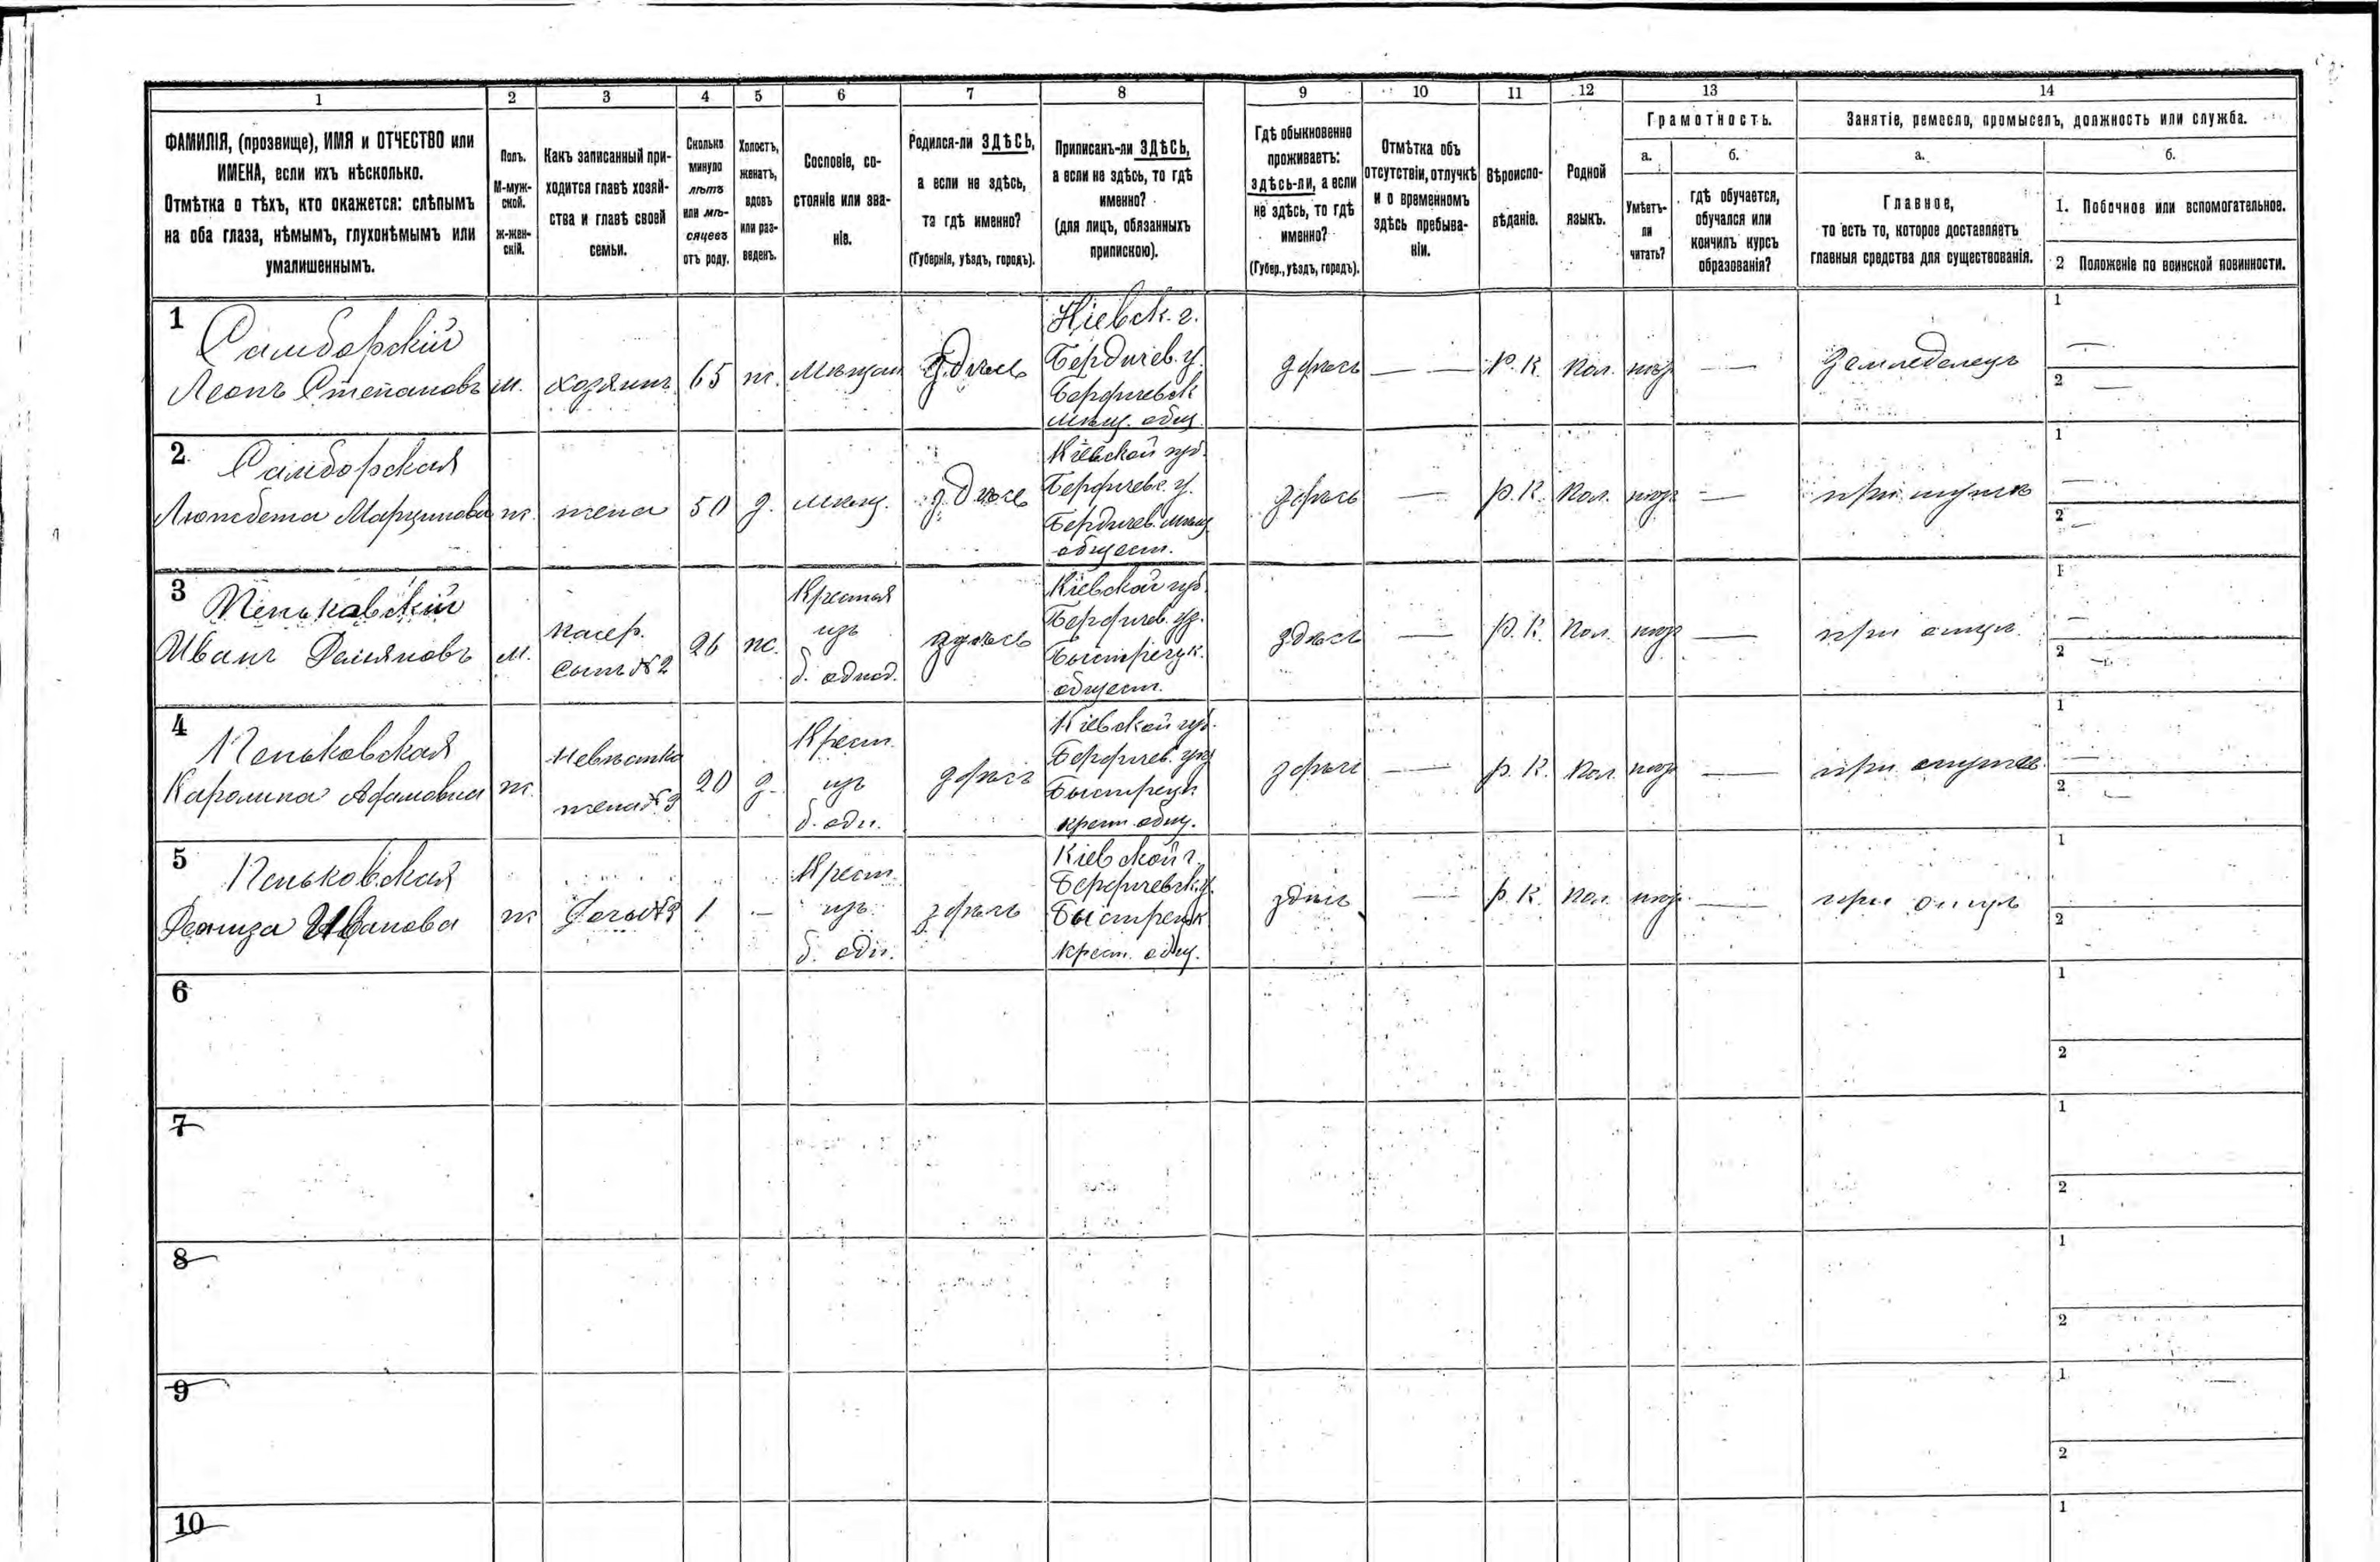 1 2 3 4 5 6 7 8 9 10 11 12 13 14
ФАМИЛІЯ, (прозвище), ИМЯ и ОТЧЕСТВО или
ИМЕНА, если ихъ нѣсколько.
Отмѣтка о тѣхъ, кто окажется: слѣпымъ
на оба глаза, нѣмымъ, глухонѣмымъ или
умалишеннымъ.
Полъ.
М-муж-
ской.
ж-жен-
скій.
Какъ записанный при-
ходится главѣ хозяй-
ства и главѣ своей
семьи.
Сколько
минуло
лѣтъ
или мѣ-
сяцевъ
отъ роду.
Холостъ,
женатъ,
вдовъ
или раз-
веденъ.
Сословіе, со-
стояніе или зва-
ніе.
Родился-ли ЗДѢСЬ,
а если не здѣсь,
то гдѣ именно?
(Губернія, уѣздъ, городъ).
Приписанъ-ли ЗДѢСЬ,
а если не здѣсь, то гдѣ
именно?
(для лицъ, обязанныхъ
припискою).
Гдѣ обыкновенно
проживаетъ:
здѣсь-ли, а если
не здѣсь, то гдѣ
именно?
(Губер., уѣздъ, городъ).
Отмѣтка объ
отсутствіи, отлучкѣ
и о временномъ
здѣсь пребыва-
ніи.
Вѣроиспо-
вѣданіе.
Родной
языкъ.
Грамотность.
а.
Умѣетъ-
ли
читать?
б.
гдѣ обучается,
обучался или
кончилъ курсъ
образованія?
Занятіе, ремесло, промыселъ, должность или служба.
а.
Главное,
то есть то, которое доставляетъ
главныя средства для существованія.
б.
1. Побочное или вспомогательное.
2 Положеніе по воинской повинности.
1
Самборскій
Леонъ Степановъ
м.
хозяинъ
65
ж.
Мѣщан
здѣсь
Кіевск. г.
Бердичев. у.
Бердичевск
мѣщ. общ.
здѣсь
— —
р. К.
Пол.
—
Земледелецъ
1 —
2 —
2
Самборская
Марцинова
ж.
жена
50
з.
мѣщ.
здѣсь
Кіевской губ.
Бердичевс. у.
Бердичев. мѣщ.
общест.
здѣсь
—
р. К.
Пол.
—
при мужѣ
1 —
2 —
3
Пеньковскій
Иванъ Демяновъ
м.
пасер.
сынъ №2
26
ж.
Крестья
изъ
б. однод.
здѣсь
Кіевской губ.
Бердичев. уз.
Быстрецк.
общест.
здѣсь
—
р. К.
Пол.
—
при отцѣ.
1 —
2 —
4
Пеньковская
Каролина Адамовна
ж.
Невѣстка
жена №3
20
з.
Крест.
изъ
б. одн.
здѣсь
Кіевской губ.
Бердичев. уѣз
Быстрецк
крест. общ.
здѣсь
—
р. К.
Пол.
—
при
1 —
2 —
5
Пеньковская
Иванова
ж
Дочь №3
1
—
Крест.
изъ
б. одн.
здѣсь
Кіевской г.
Бердичевск. у.
Быстрецк
крест. общ.
здѣсь
—
р. К.
Пол.
—
при отцѣ
1 —
2 —
6
1
2
7
1
2
8
1
2
9
1
2
10
1